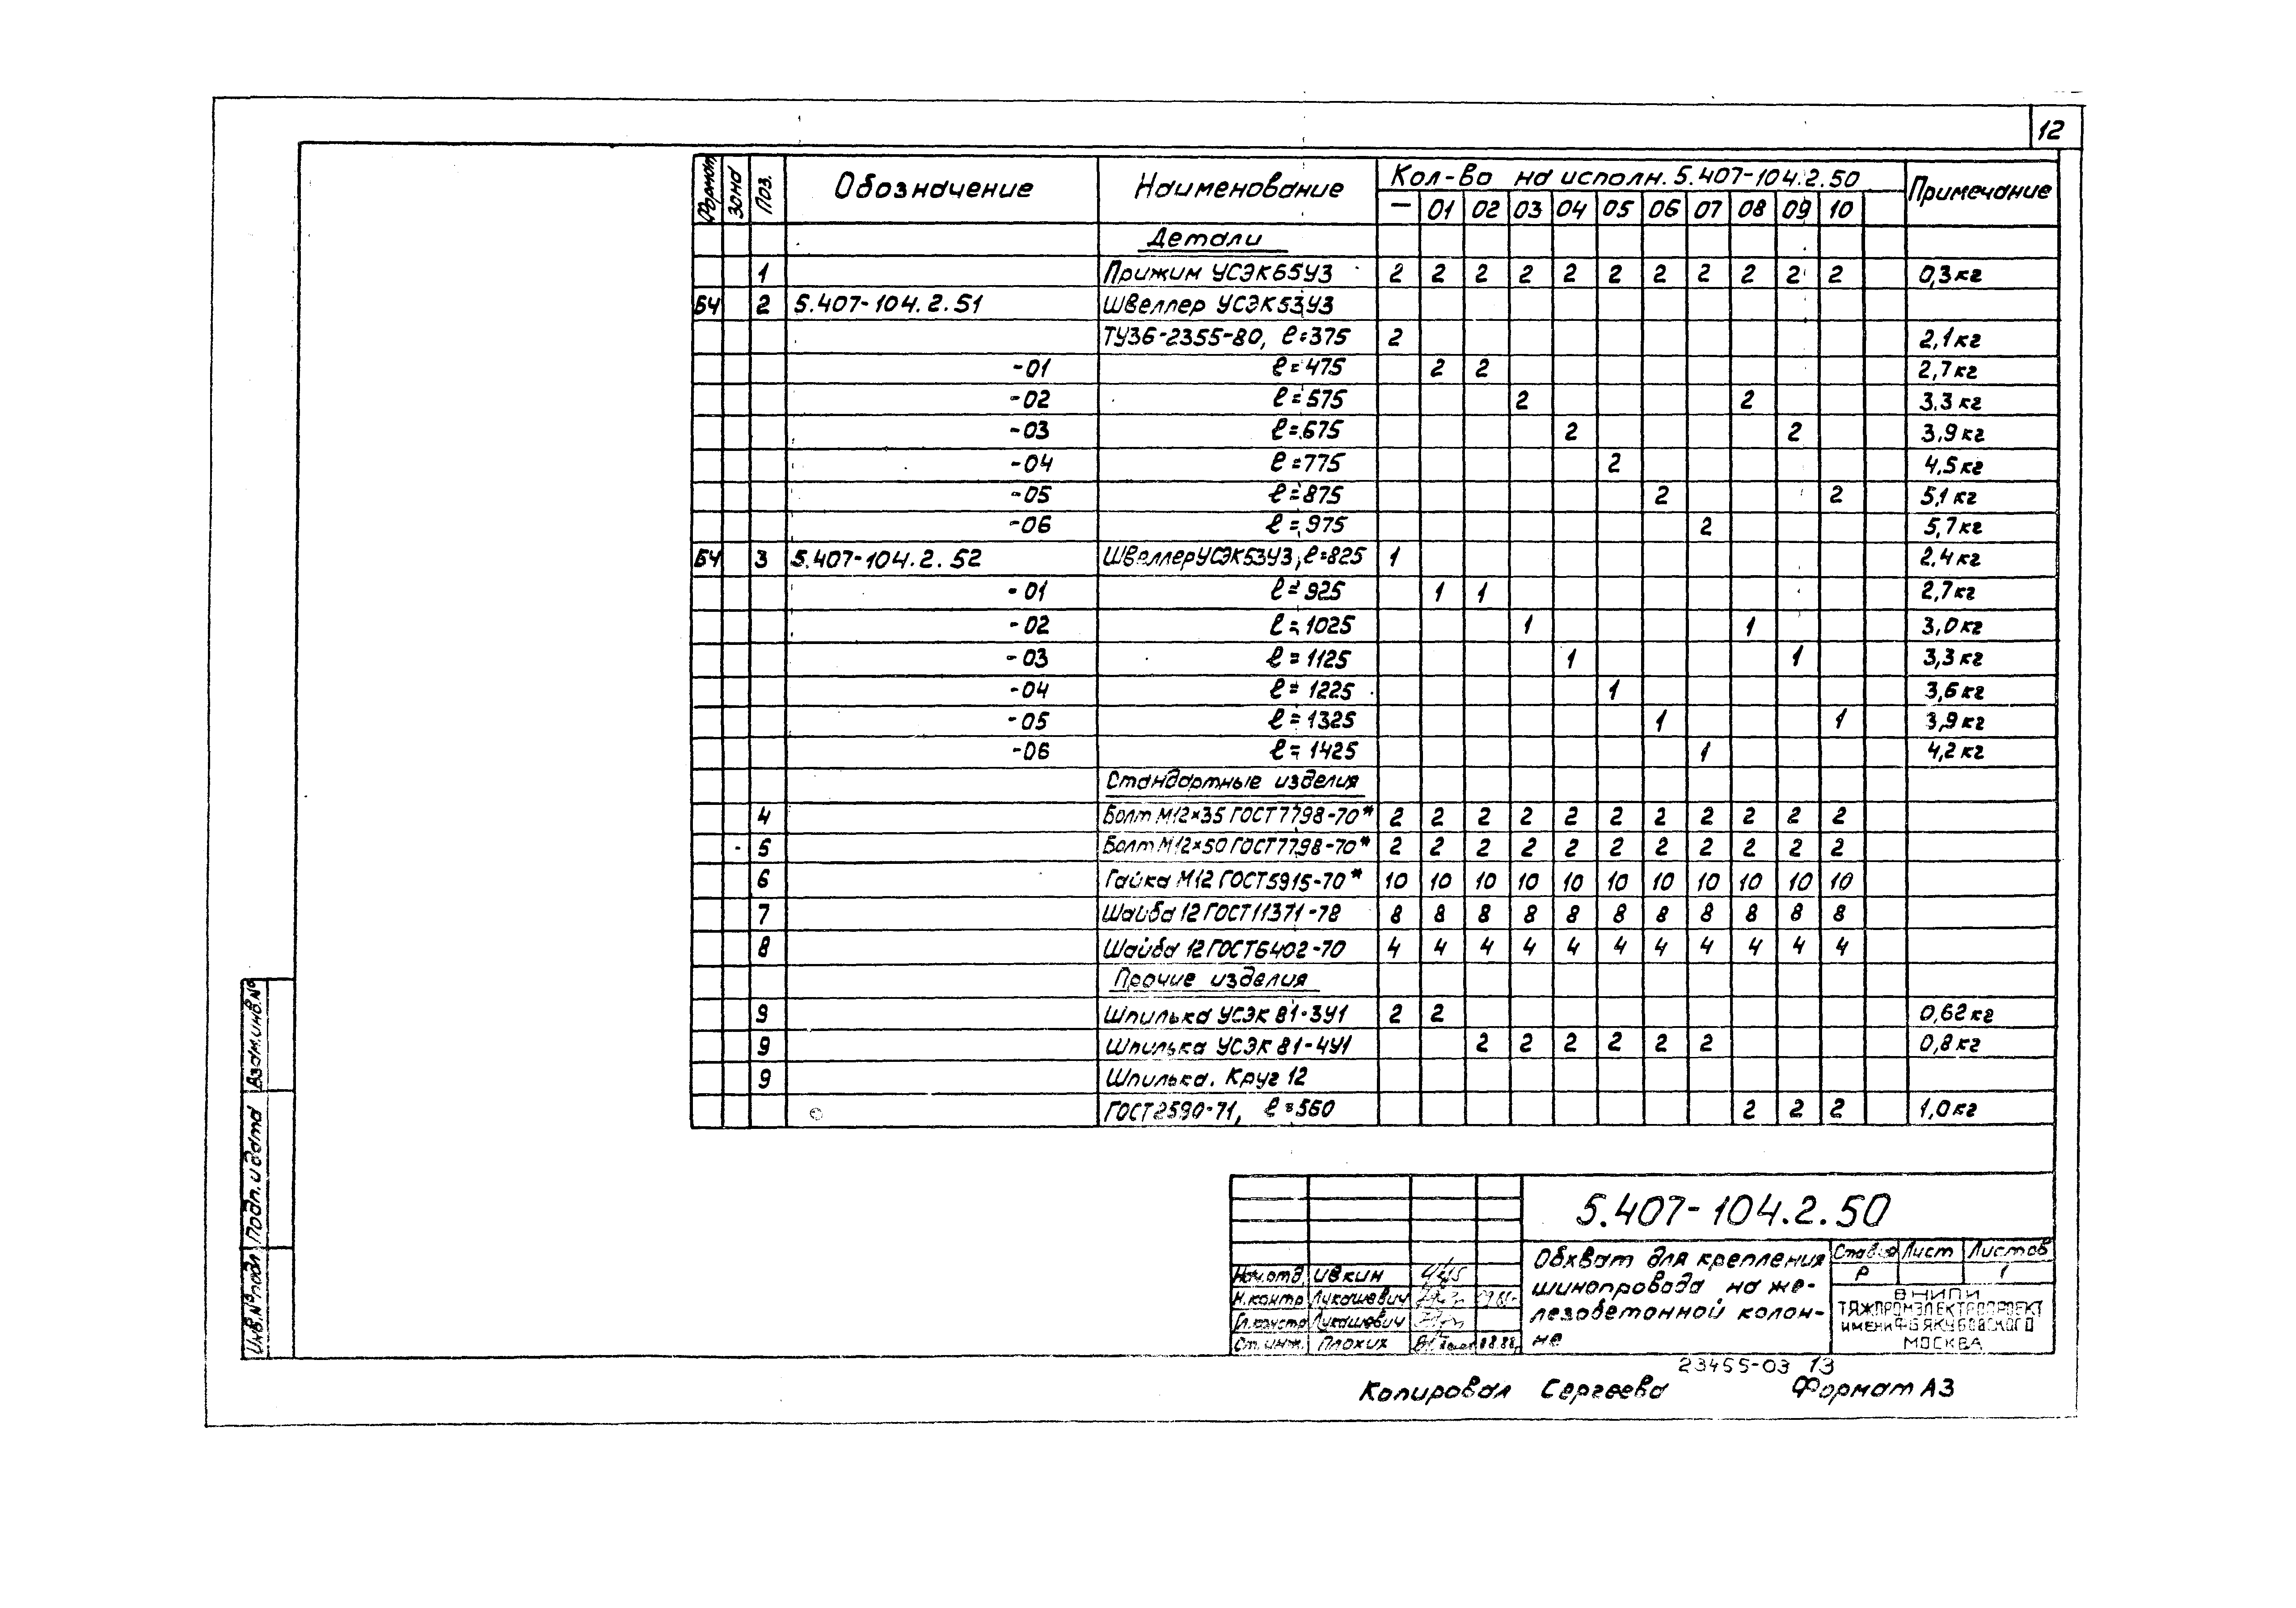 12
Формат Зона Поз. Обозначение Наименование Кол-во на исполн. 5.407-104.2.50 Примечание
— 01 02 03 04 05 06 07 08 09 10
Детали
1 Прижим УСЭК65У3 2 2 2 2 2 2 2 2 2 2 2 0,3кг
БЧ 2 5.407-104.2.51 Швеллер УСЭК53У3
ТУ36-2355-80, ℓ=375 2 2,1кг
-01 ℓ=475 2 2 2,7кг
-02 ℓ=575 2 2 3.3кг
-03 ℓ=675 2 2 3,9кг
-04 ℓ=775 2 4,5кг
-05 ℓ=875 2 2 5,1кг
-06 ℓ=975 2 5,7кг
БЧ 3 5.407-104.2.52 Швеллер УСЭК53У3, ℓ=825 1 2.4кг
-01 ℓ=925 1 1 2,7кг
-02 ℓ=1025 1 1 3,0кг
-03 ℓ=1125 1 1 3,3кг
-04 ℓ=1225 1 3,6кг
-05 ℓ=1325 1 1 3,9кг
-06 ℓ=1425 1 4,2кг
Стандартные изделия
4 Болт М12×35 ГОСТ7798-70* 2 2 2 2 2 2 2 2 2 2 2
5 Болт М12×50 ГОСТ7798-70* 2 2 2 2 2 2 2 2 2 2 2
6 Гайка М12 ГОСТ5915-70* 10 10 10 10 10 10 10 10 10 10 10
7 Шайба 12 ГОСТ11371-78 8 8 8 8 8 8 8 8 8 8 8
8 Шайба 12 ГОСТ6402-70 4 4 4 4 4 4 4 4 4 4 4
Прочие изделия
9 Шпилька УСЭК 81-3У1 2 2 0,62кг
9 Шпилька УСЭК 81-4У1 2 2 2 2 2 2 0,8кг
9 Шпилька. Круг 12
ГОСТ2590-71, ℓ=560 2 2 2 1,0кг
Инв.№подл Подп. и дата Взам.инв.№
5.407-104.2.50
Обхват для крепления
шинопровода на же-
лезобетонной колон-
не
Стадия Лист Листов
Р 1
ВНИПИ
ТЯЖПРОМЭЛЕКТРОПРОЕКТ
ИМЕНИ Ф.Б.ЯКУБОВСКОГО
МОСКВА
Нач.отд. Ивкин
Н.контр Лукашевич
Гл.констр Лукашевич
Ст.инж. Плохих
23455-03 13
Копировал Сергеева Формат А3